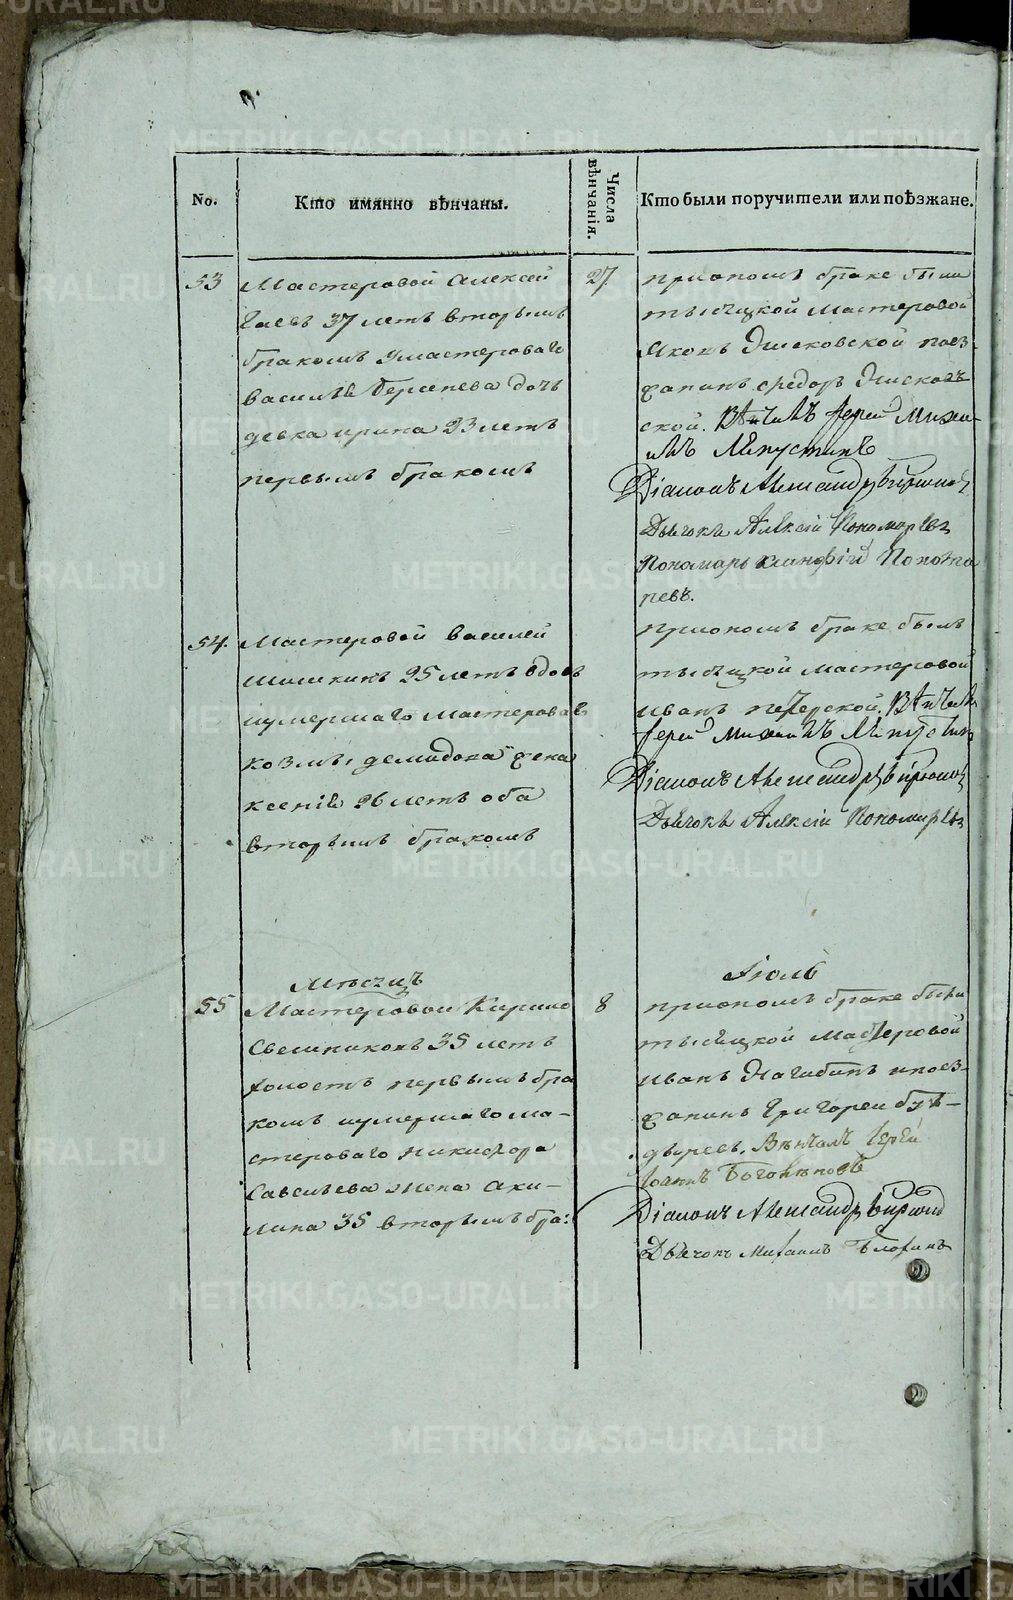 No.
Кто имянно вѣнчаны.
Числа вѣнчанія.
Кто были поручители или поѣзжане.
53
Мастеровой Алексей
37 летъ вторымъ
бракомъ умастероваго
василья Берсенева дочь
девка ирина 23 летъ
первымъ бракомъ
27
приономъ браке были
тысяцкой мастеровой
Яковъ поез-
жанинъ федоръ
ской. Вѣнчалъ Іерей Михаи-
илъ Ляпустинъ
Діаконъ Александръ Бирюковъ
Дьячокъ Алексій Пономаревъ
Пономарь Ксинофій Понома
ревъ.
54.
Мастеровой василей
шишкинъ 25 летъ вдовъ
иумершаго мастероваго
козмы демидова жена
ксения 26 летъ оба
вторымъ бракомъ
приономъ браке былъ
тысяцкой мастеровой
иванъ печерской. Вѣнчалъ
Іерей Михаилъ Ляпустинъ
Діаконъ Александръ Бирюковъ
Дьячокъ Алексій Пономаревъ
Месяцъ
Іюль
55
Мастеровой Кирило
Свешниковъ 35 летъ
холостъ первымъ бра
комъ иумершаго ма-
стероваго никифора
Савельева жена Аки-
лина 35 вторымъ бра:
8
приономъ браке были
тысяцкой Мастеровой
иванъ Нагибинъ ипоез-
жанинъ Григореи
Вѣнчалъ Іерей
Іоаннъ Боголѣповъ
Діаконъ Александръ Бирюковъ
Дьячокъ Михаилъ
METRIKI.GASO-URAL.RU